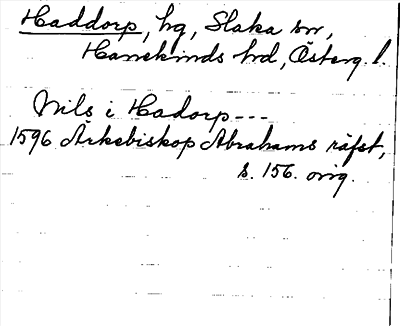 Haddorp, hg, Slaka sn,
Hanekinds hd, Österg. l.
Nils i Hadorp ---
1596 Ärkebiskop Abrahams räfst,
s. 156. orig.